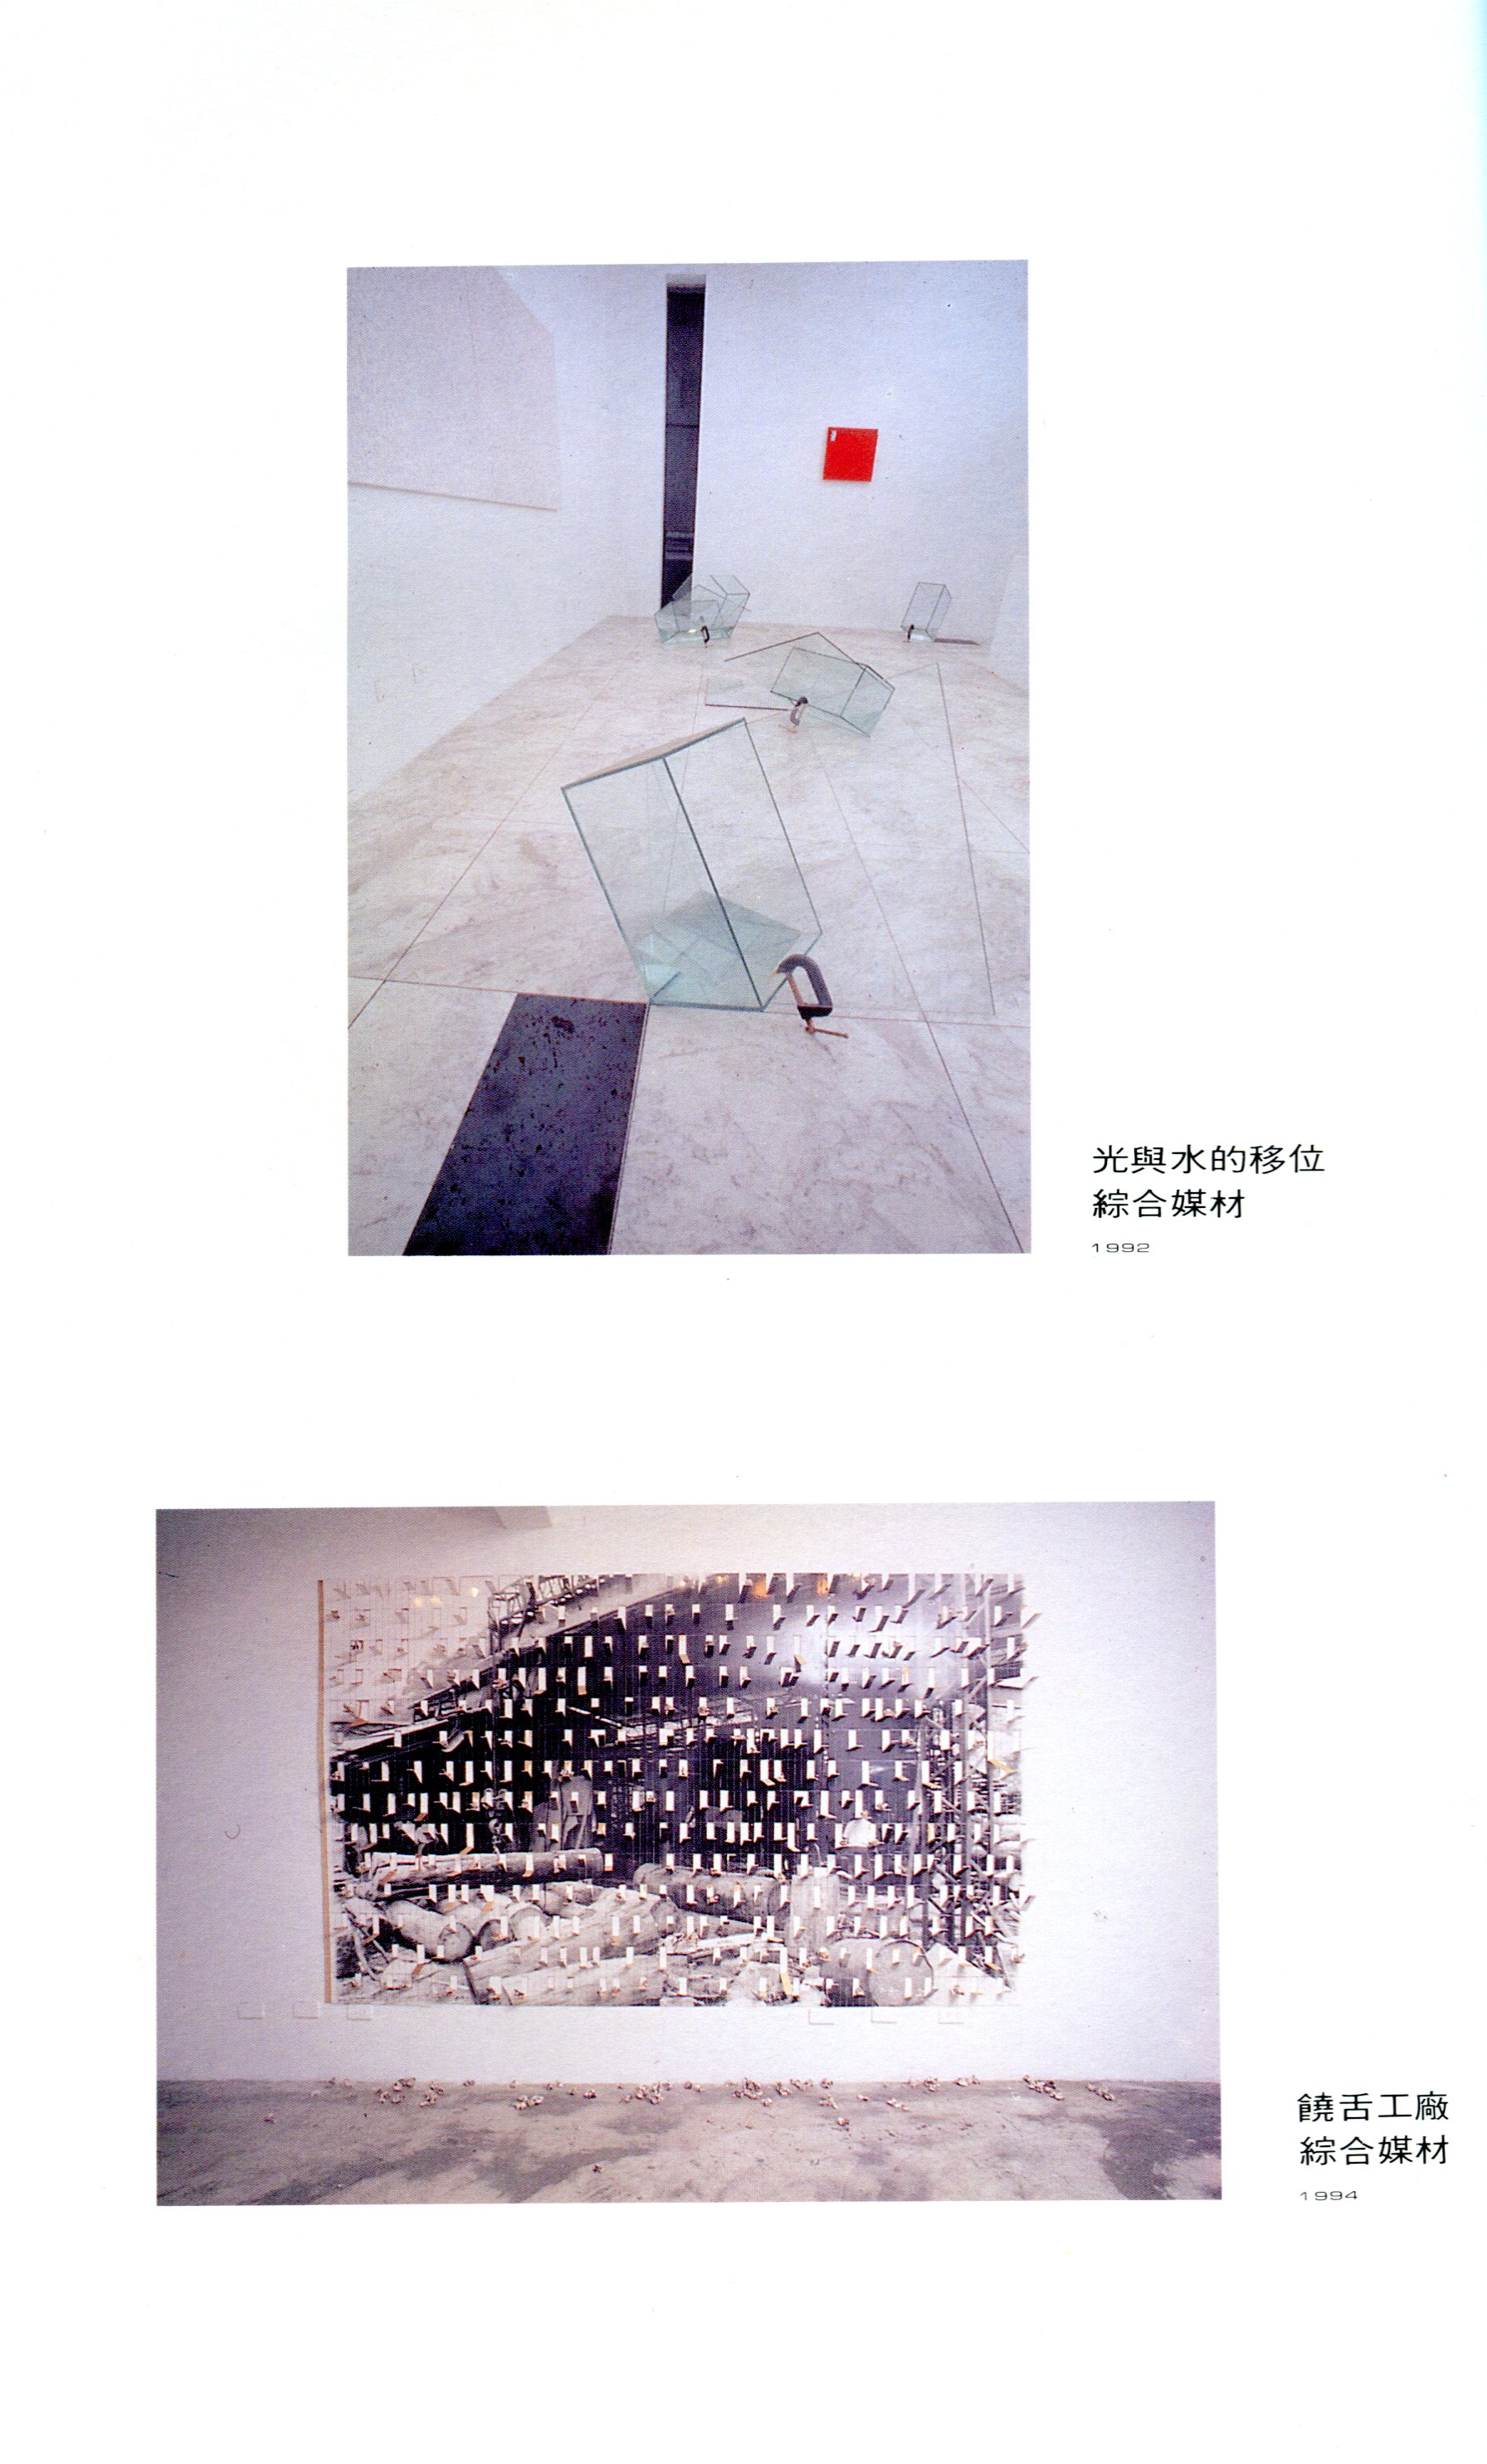 光與水的移位
綜合媒材
1992
饒舌工廠
綜合媒材
1994